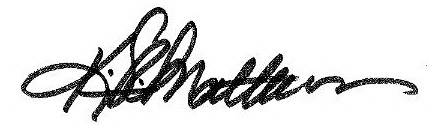 K. S. Matthews